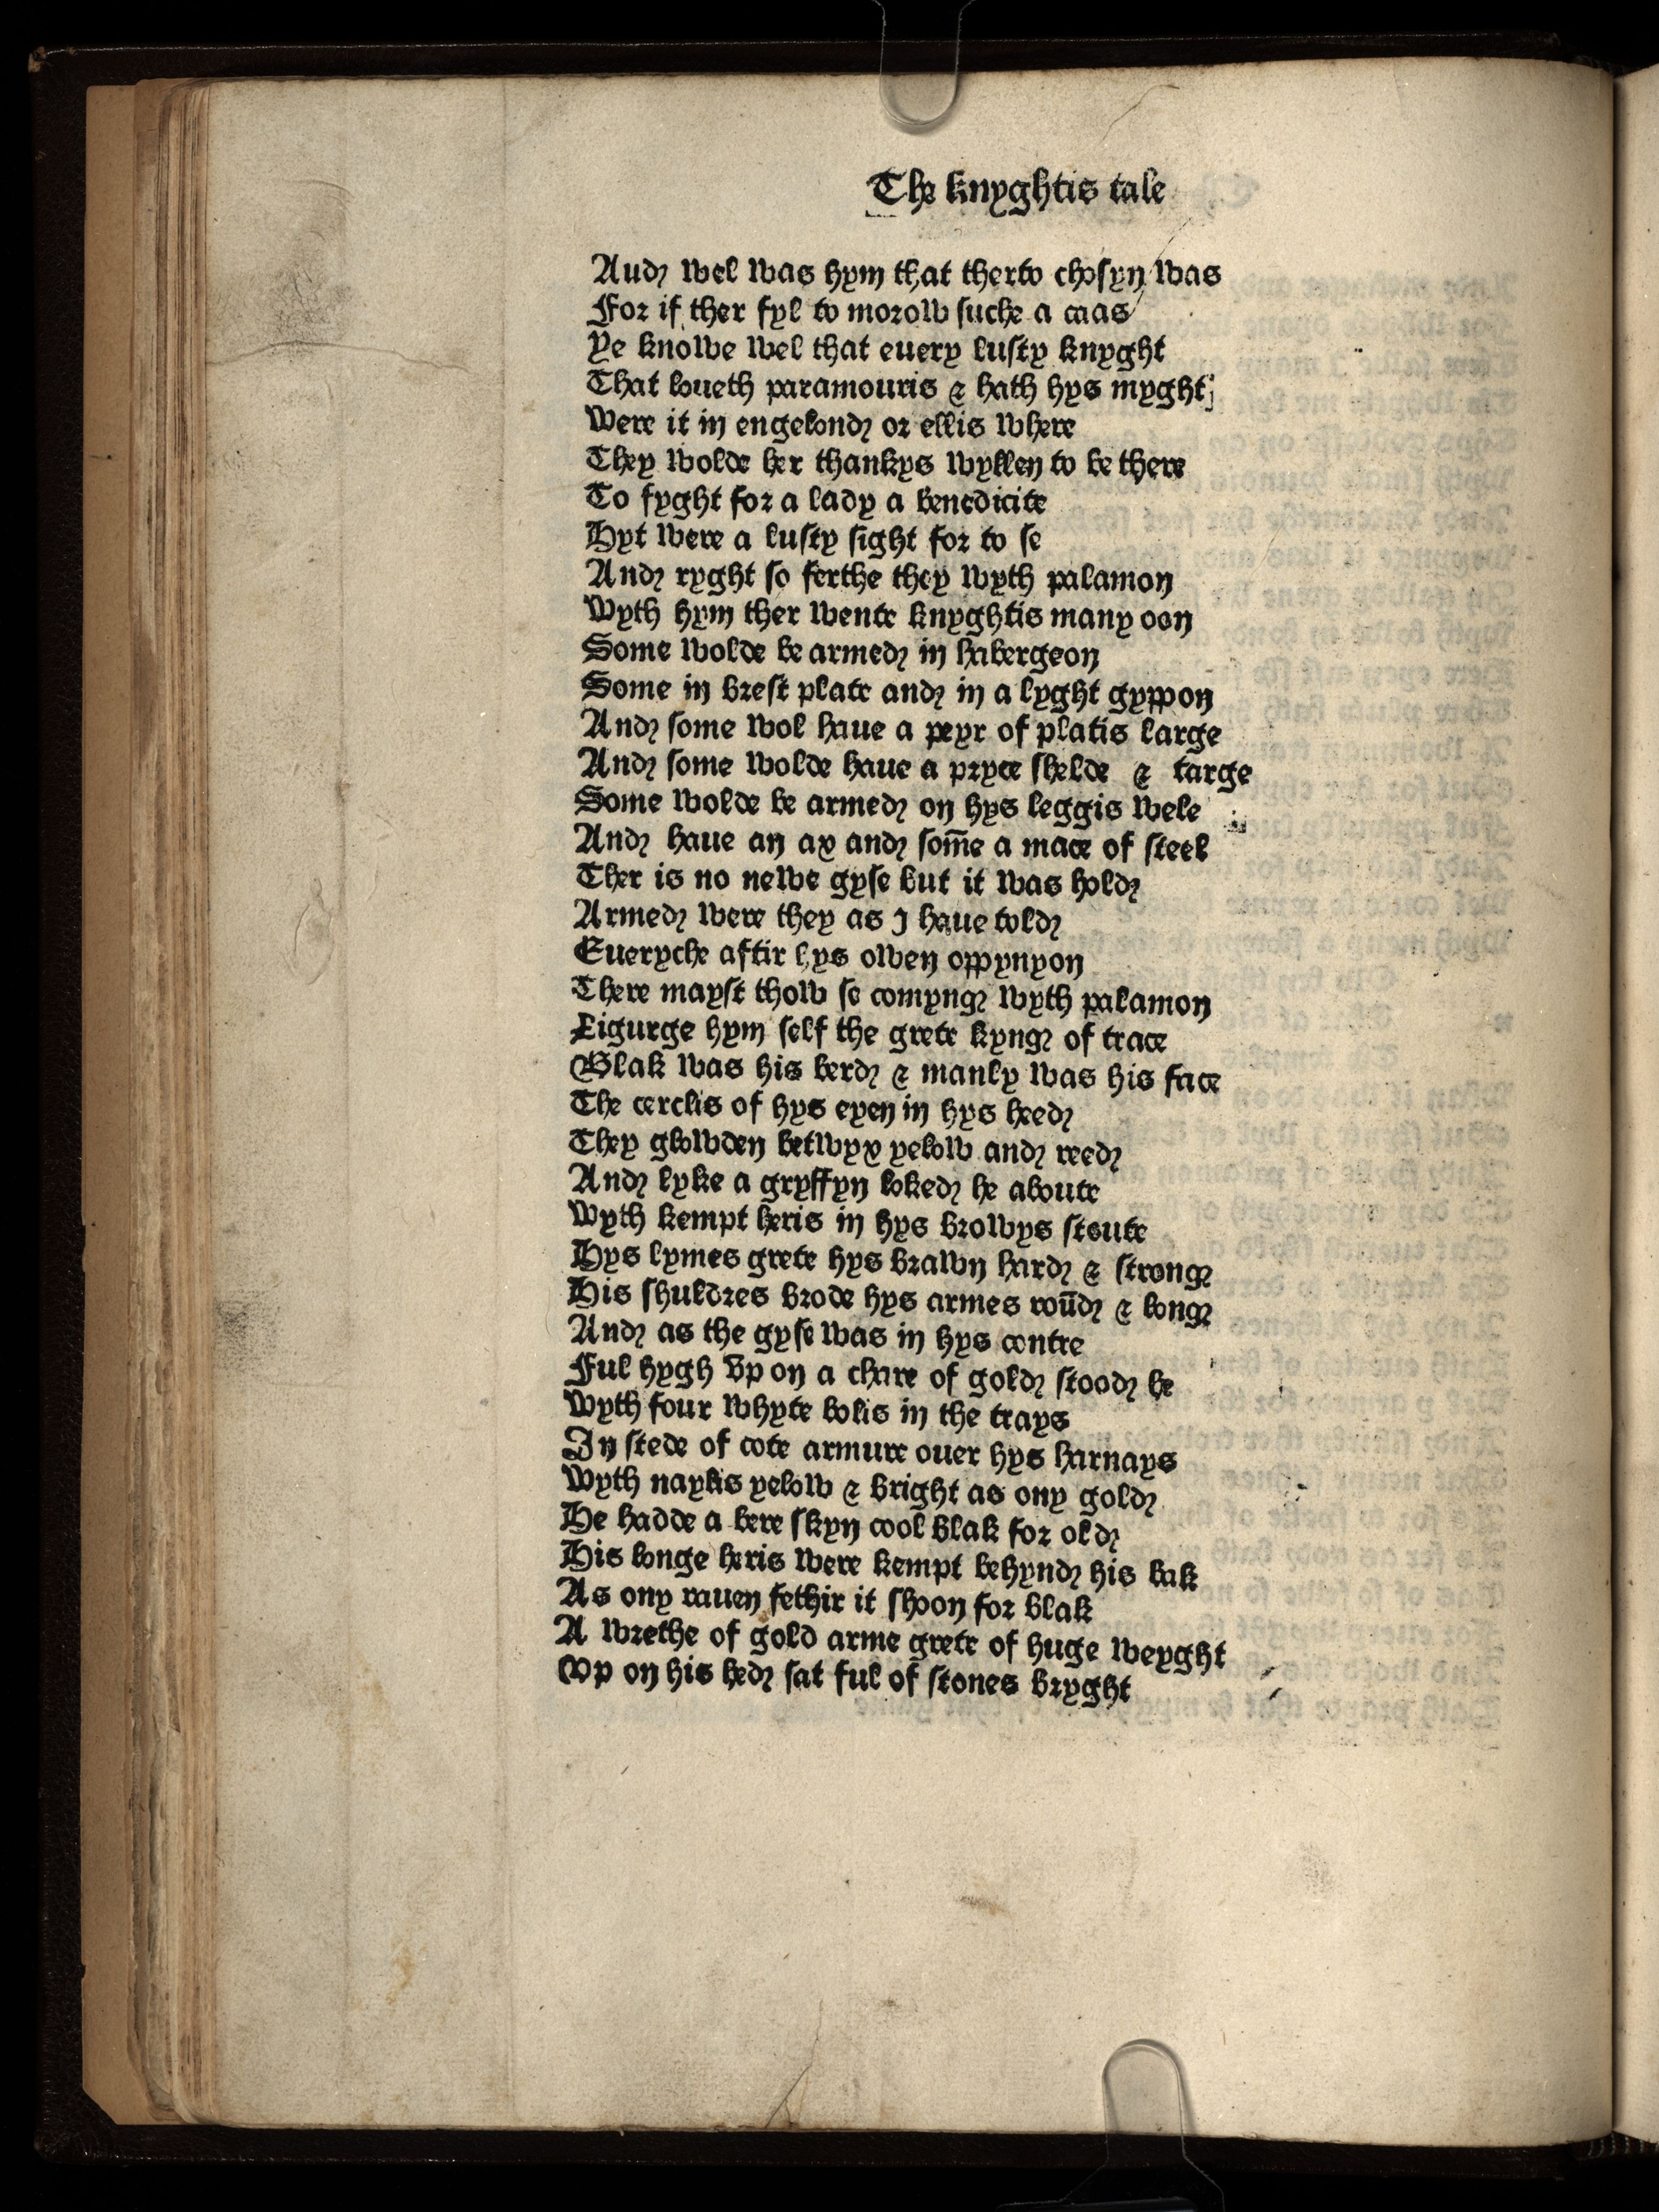 The knyghtis tale
Aud wel was hym that therto chosyn was
For if ther fyl to morow suche a caas
Ye knowe wel that euery lusty knyght
That loueth paramouris & hath hys myght
Were it in engelond or ellis where
They wolde her thankys wyllen to be there
To fyght for a lady a benedicite
Hyt were a lusty sight for to se
And ryght so ferthe they wyth palamon
Wyth hym ther wente knyghtis many oon
Some wolde be armed in habergeon
Some in brest plate and in a lyght gyppon
And some wol haue a peyr of platis large
And some wolde haue a pryce shelde & targe
Some wolde be armed on hys leggis wele
And haue an ax and som̄e a mace of steel
Ther is no newe gyse but it was hold
Armed were they as I haue told
Eueryche aftir hys owen oppynyon
There mayst thow se comyng wyth palamon
Ligurge hym self the grete kyng of trace
Blak was his berd & manly was his face
The cerclis of hys eyen in hys heed
They glowden betwyx yelow and reed
And lyke a gryffyn loked he aboute
Wyth kempt heris in hys browys stoute
Hys lymes grete hys brawn hard & strong
His shuldres brode hys armes roūd & long
And as the gyse was in hys contre
Ful hygh vp on a chare of gold stood he
Wyth four whyte bolis in the trays
In stede of cote armure ouer hys harnays
Wyth naylis yelow & bright as ony gold
He hadde a bere skyn cool blak for old
His longe heris were kempt behynd his bak
As ony rauen fethir it shoon for blak
A wrethe of gold arme grete of huge weyght
Vp on his hed sat ful of stones bryght